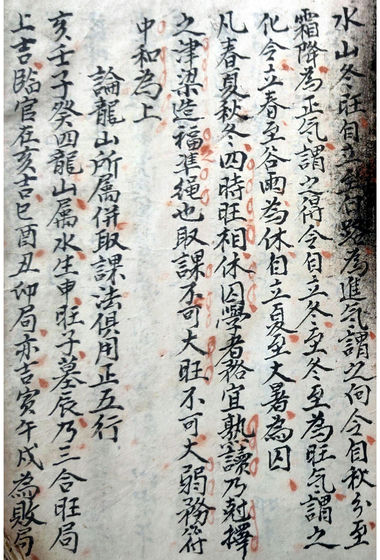 水山冬旺自立秋至白路為進气謂之向令自秋分至
霜降為正気謂之得令自立冬至冬至為旺气謂之
化令立春至谷雨為休自立夏至大暑為囚
凡春夏秋冬四時旺相休囚學者務宜熟讀乃尅擇
之津梁造福準绳也取課不可大旺不可大弱務符
中和為上
論龍山所属併取課法俱用正五行
亥壬子癸四龍山属水生申旺子墓辰乃三合旺局
上吉臨官在亥吉巳酉丑印局亦吉寅午戌為敗局